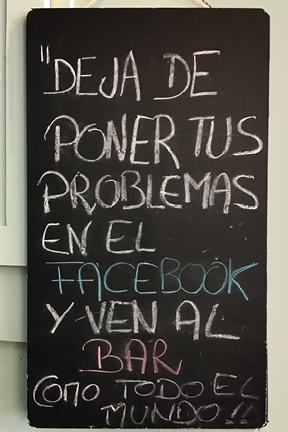 "DEJA DE
PONER TUS
PROBLEMAS
EN EL
FACEBOOK
Y VEN AL
BAR
COMO TODO EL
MUNDO !!